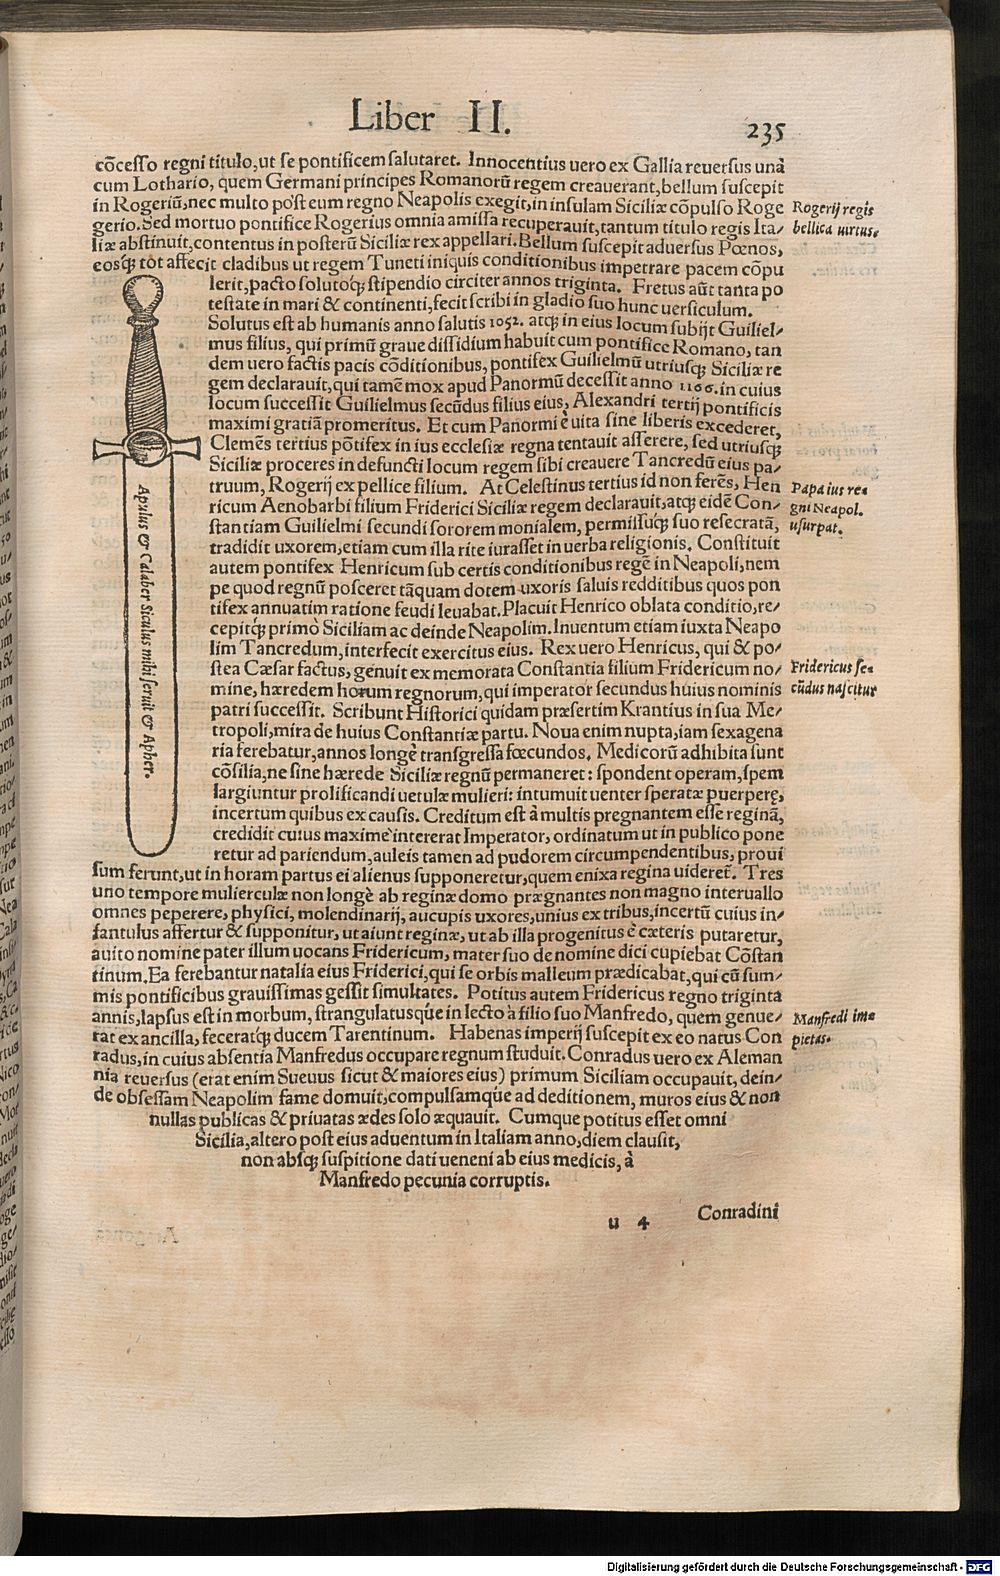 Liber II.
235
cõcesso regni titulo, ut se pontificem salutaret. Innocentius uero ex Gallia reuersus unà
cum Lothario, quem Germani principes Romanorũ regem creauerant, bellum suscepit
in Rogeriũ, nec multo pòst eum regno Neapolis exegit, in insulam Siciliæ cõpulso Roge
gerio. Sed mortuo pontifice Rogerius omnia amissa recuperauit, tantum titulo regis Ita/
liæ abstinuit, contentus in posterũ Siciliæ rex appellari. Bellum suscepit aduersus Pœnos,
eosq́ tot affecit cladibus ut regem Tuneti iniquis conditionibus impetrare pacem cõpu
lerit, pacto solutoq́ stipendio circiter annos triginta. Fretus aũt tanta po
testate in mari & continenti, fecit scribi in gladio suo hunc uersiculum.
Solutus est ab humanis anno salutis 1052. atq́ in eius locum subijt Guiliel/
mus filius, qui primũ graue dissidium habuit cum pontifice Romano, tan
dem uero factis pacis cõditionibus, pontifex Guilielmũ utriusq́ Siciliæ re
gem declarauit, qui tamẽ mox apud Panormũ decessit anno 1166. in cuius
locum successit Guilielmus secũdus filius eius, Alexandri tertij pontificis
maximi gratiã promeritus. Et cum Panormi è uita sine liberis excederet,
Clemẽs tertius põtifex in ius ecclesiæ regna tentauit asserere, sed utriusq́
Siciliæ proceres in defuncti locum regem sibi creauere Tancredũ eius pa/
truum, Rogerij ex pellice filium. At Celestinus tertius id non ferẽs, Hen
ricum Aenobarbi filium Friderici Siciliæ regem declarauit, atq́ eidẽ Con/
stantiam Guilielmi secundi sororem monialem, permissuq́ suo resecratã,
tradidit uxorem, etiam cum illa rite iurasset in uerba religionis. Constituit
autem pontifex Henricum sub certis conditionibus regẽ in Neapoli, nem
pe quod regnũ posceret tãquam dotem uxoris saluis redditibus quos pon
tifex annuatim ratione feudi leuabat. Placuit Henrico oblata conditio, re/
cepitq́ primò Siciliam ac deinde Neapolim. Inuentum etiam iuxta Neapo
lim Tancredum, interfecit exercitus eius. Rex uero Henricus, qui & po/
stea Cæsar factus, genuit ex memorata Constantia filium Fridericum no/
mine, hæredem horum regnorum, qui imperator secundus huius nominis
patri successit. Scribunt Historici quidam præsertim Krantius in sua Me/
tropoli, mira de huius Constantiæ partu. Noua enim nupta, iam sexagena
ria ferebatur, annos longè transgressa fœcundos. Medicorũ adhibita sunt
cõsilia, ne sine hærede Siciliæ regnũ permaneret: spondent operam, spem
largiuntur prolificandi uetulæ mulieri: intumuit uenter speratæ puerperę,
incertum quibus ex causis. Creditum est à multis pregnantem esse reginã,
credidit cuius maximè intererat Imperator, ordinatum ut in publico pone
retur ad pariendum, auleis tamen ad pudorem circumpendentibus, proui
sum ferunt, ut in horam partus ei alienus supponeretur, quem enixa regina uideret̃. Tres
uno tempore mulierculæ non longè ab reginæ domo prægnantes non magno interuallo
omnes peperere, physici, molendinarij, aucupis uxores, unius ex tribus, incertũ cuius in/
fantulus affertur & supponitur, ut aiunt reginæ, ut ab illa progenitus è cæteris putaretur,
auito nomine pater illum uocans Fridericum, mater suo de nomine dici cupiebat Cõstan
tinum. Ea ferebantur natalia eius Friderici, qui se orbis malleum prædicabat, qui cũ sum/
mis pontificibus grauissimas gessit simultates. Potitus autem Fridericus regno triginta
annis, lapsus est in morbum, strangulatusq́ue in lecto à filio suo Manfredo, quem genue/
rat ex ancilla, feceratq́ ducem Tarentinum. Habenas imperij suscepit ex eo natus Con
radus, in cuius absentia Manfredus occupare regnum studuit. Conradus uero ex Aleman
nia reuersus (erat enim Sueuus sicut & maiores eius) primum Siciliam occupauit, dein/
de obsessam Neapolim fame domuit, compulsamq́ue ad deditionem, muros eius & non
nullas publicas & priuatas ædes solo æquauit. Cumque potitus esset omni
Sicilia, altero post eius aduentum in Italiam anno, diem clausit,
non absq́ suspitione dati ueneni ab eius medicis, à
Manfredo pecunia corruptis.
u 4
Conradini
Rogerij regis
bellica uirtus.
Papa ius re-
gni Neapol.
usurpat.
Fridericus se-
cũdus nascitur
Manfredi im-
pietas.
Apulus & Calaber Siculus mihi seruit & Apher.
Digitalisierung gefördert durch die Deutsche Forschungsgemeinschaft - DFG